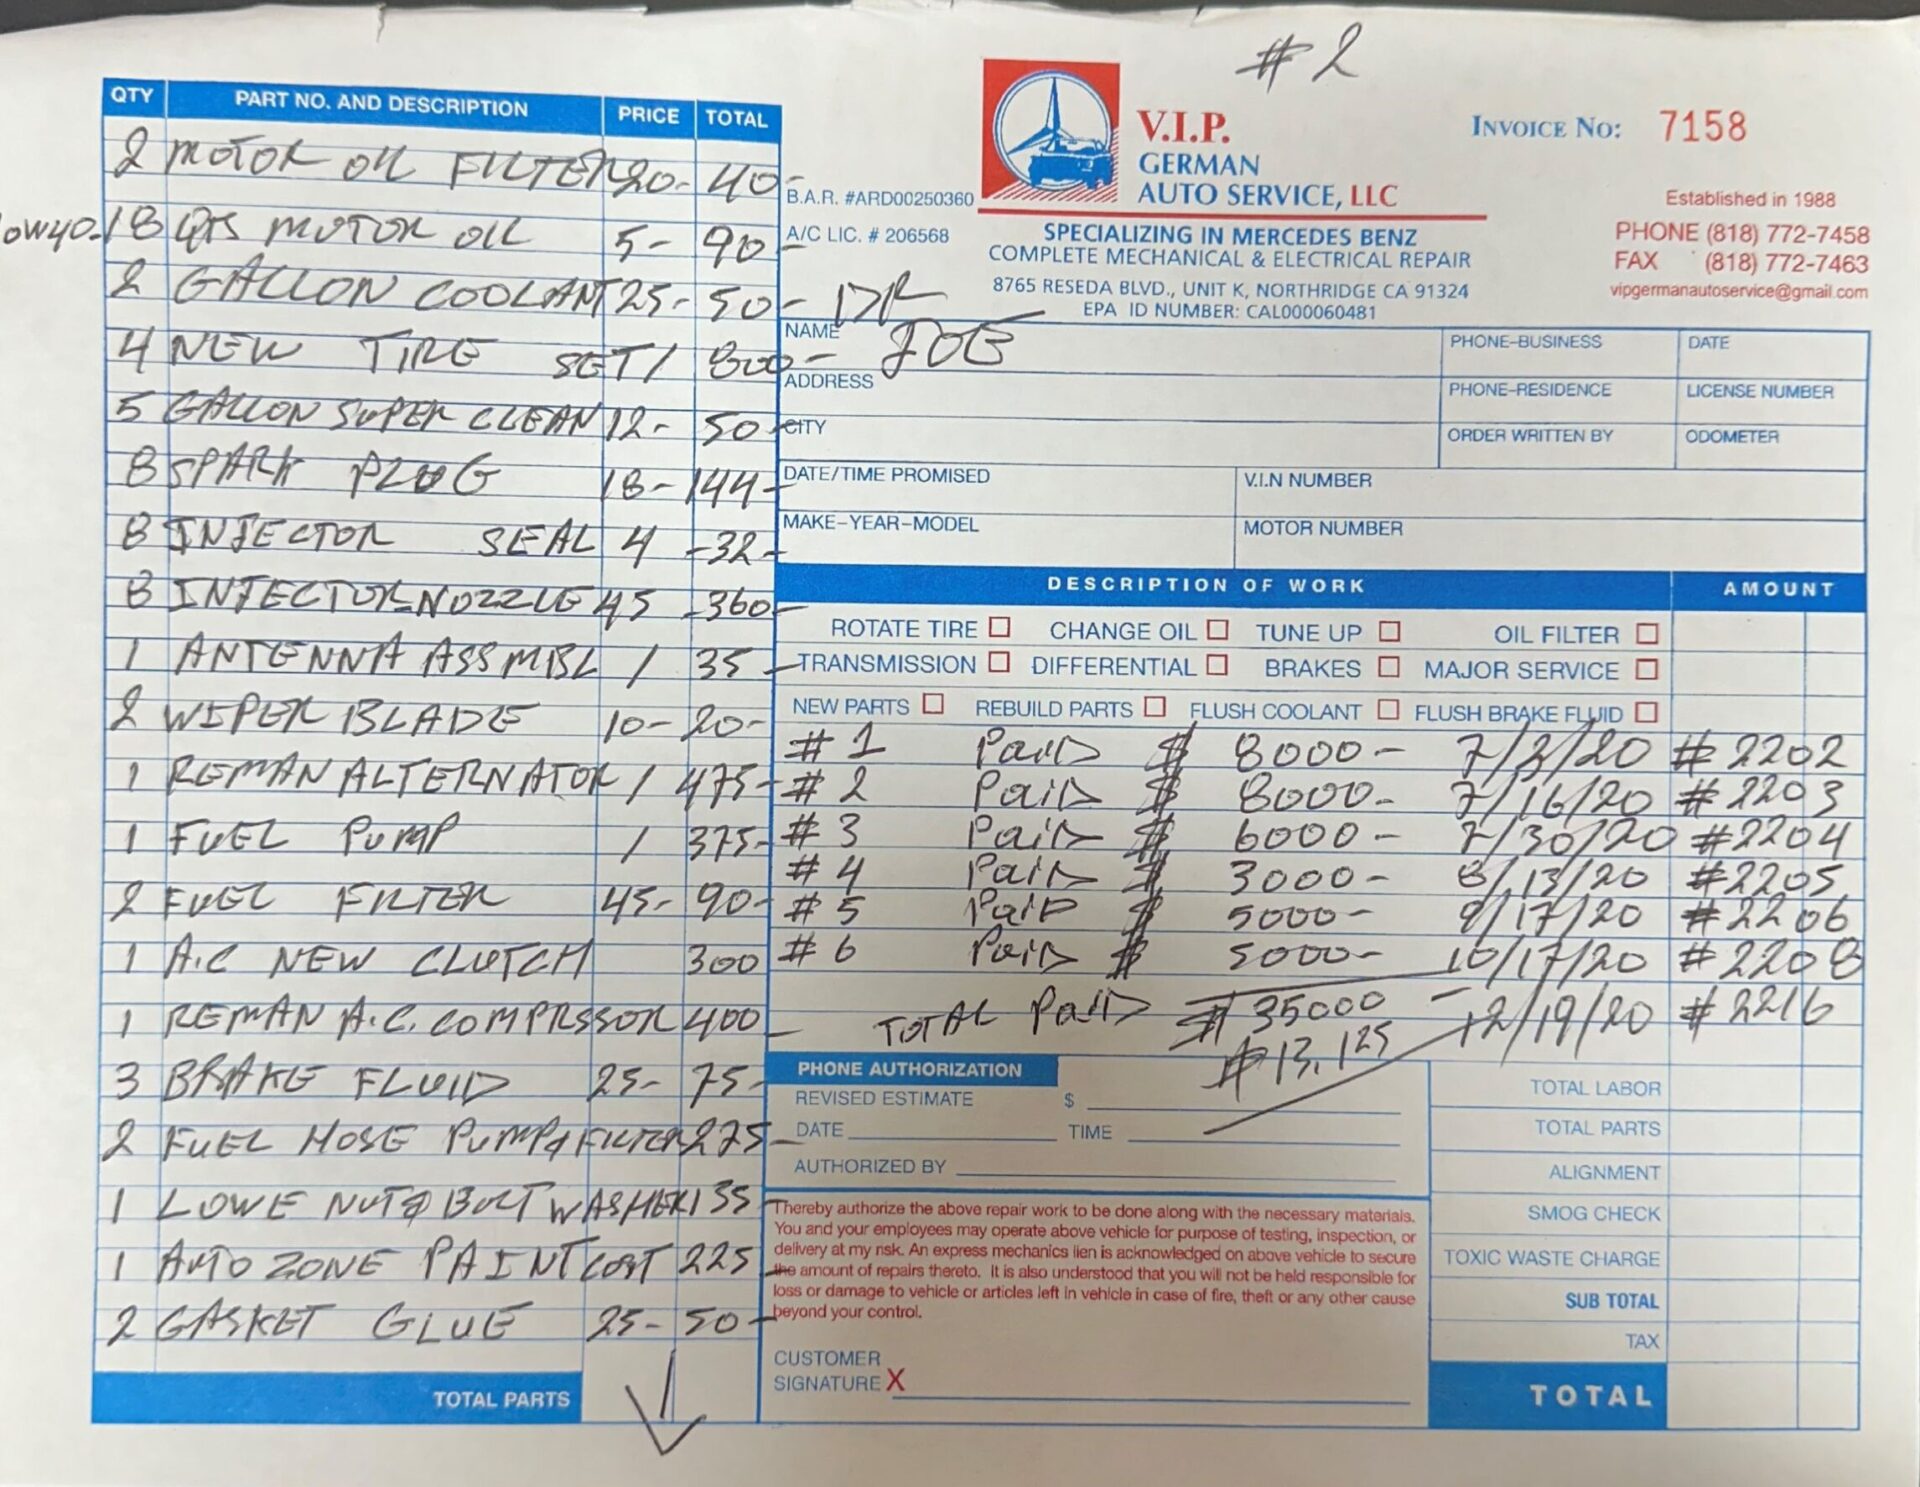 #2
QTY PART NO. AND DESCRIPTION PRICE TOTAL
2 MOTOR OIL FILTER 20- 40-
0W40- 18 QTS MOTOR OIL 5- 90-
2 GALLON COOLANT 25- 50-
4 NEW TIRE SET / 800-
5 GALLON SUPER CLEAN 12- 50-
8 SPARK PLUG 18- 144-
8 INJECTOR SEAL 4 -32-
8 INJECTOR-NOZZLE 45 -360-
1 ANTENNA ASSMBL / 35-
2 WIPER BLADE 10- 20-
1 REMAN ALTERNATOR / 475-
1 FUEL PUMP / 375-
2 FUEL FILTER 45- 90-
1 A.C NEW CLUTCH 300
1 REMAN A.C. COMPRSSOR 400-
3 BRAKE FLUID 25- 75-
2 FUEL HOSE PUMP & FILTER 275-
1 LOWE NUT & BOLT WASHER 135-
1 AUTO ZONE PAINT COST 225-
2 GASKET GLUE 25- 50-
TOTAL PARTS
B.A.R. #ARD00250360
A/C LIC. # 206568
V.I.P.
GERMAN
AUTO SERVICE, LLC
SPECIALIZING IN MERCEDES BENZ
COMPLETE MECHANICAL & ELECTRICAL REPAIR
8765 RESEDA BLVD., UNIT K, NORTHRIDGE CA 91324
EPA ID NUMBER: CAL000060481
INVOICE NO: 7158
Established in 1988
PHONE (818) 772-7458
FAX (818) 772-7463
vipgermanautoservice@gmail.com
DR
NAME JOE PHONE-BUSINESS DATE
ADDRESS PHONE-RESIDENCE LICENSE NUMBER
CITY ORDER WRITTEN BY ODOMETER
DATE/TIME PROMISED V.I.N NUMBER
MAKE-YEAR-MODEL MOTOR NUMBER
DESCRIPTION OF WORK AMOUNT
ROTATE TIRE CHANGE OIL TUNE UP OIL FILTER
TRANSMISSION DIFFERENTIAL BRAKES MAJOR SERVICE
NEW PARTS REBUILD PARTS FLUSH COOLANT FLUSH BRAKE FLUID
#1 Paid $ 8000- 7/2/20 #2202
#2 Paid $ 8000- 7/16/20 #2203
#3 Paid $ 6000- 7/30/20 #2204
#4 Paid $ 3000- 8/13/20 #2205
#5 Paid $ 5000- 9/17/20 #2206
#6 Paid $ 5000- 10/17/20 #2208
TOTAL Paid $ 35000 - 12/19/20 #2216
$13,125
PHONE AUTHORIZATION
REVISED ESTIMATE $
DATE TIME
AUTHORIZED BY
Thereby authorize the above repair work to be done along with the necessary materials.
You and your employees may operate above vehicle for purpose of testing, inspection, or
delivery at my risk. An express mechanics lien is acknowledged on above vehicle to secure
the amount of repairs thereto. It is also understood that you will not be held responsible for
loss or damage to vehicle or articles left in vehicle in case of fire, theft or any other cause
beyond your control.
CUSTOMER
SIGNATURE X
TOTAL LABOR
TOTAL PARTS
ALIGNMENT
SMOG CHECK
TOXIC WASTE CHARGE
SUB TOTAL
TAX
TOTAL